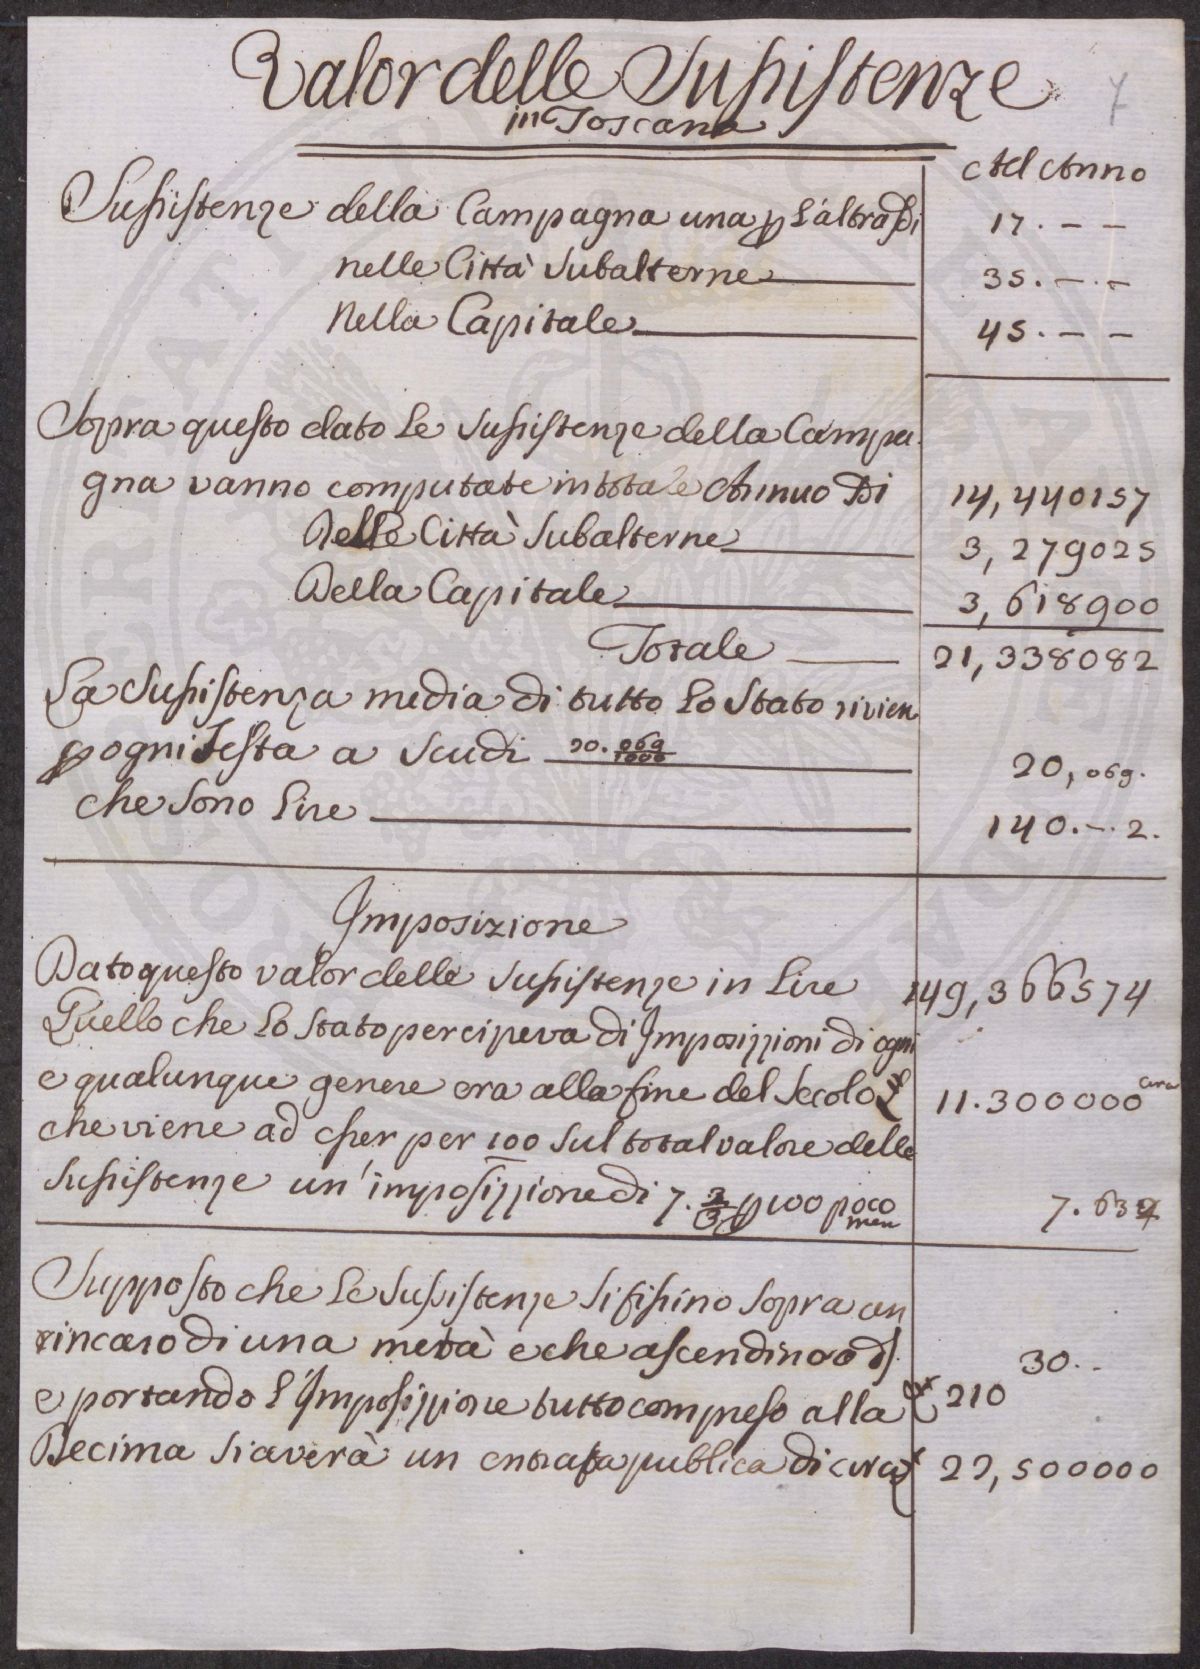 Valor delle Sussistenze
in Toscana
7
Ad Anno
Sussistenze della Campagna una p L'altra Di 17. — —
nelle Città Subalterne 35. — —
Nella Capitale 45. — —
Sopra questo dato le Sussistenze della Campa-
gna vanno computate in totale Annuo Di 14,440157
Delle Città Subalterne 3,279025
Della Capitale 3,618900
Totale 21,338082
La Sussistenza media di tutto Lo Stato rivien
p ogni Testa a Scudi 20. 069/1000 20,069.
che Sono Lire 140.-.2.
Imposizione
Dato questo valor delle Sussistenze in Lire 149,366574
Quello che Lo Stato percipeva di Imposizzioni di ogni
e qualunque genere era alla fine del Secolo £ 11.300000 circa
che viene ad esser per 100 Sul total valore delle
Sussistenze un' imposizzione di 7. 2/3 p 100 poco men 7.63
Supposto che Le Sussistenze Si fissino Sopra un
rincaro di una metà e che ascendino a 30..
e portando L'Imposizzione tutto compreso alla £ 210
Decima Si averà un entrata pubblica di circa £ 22,500000